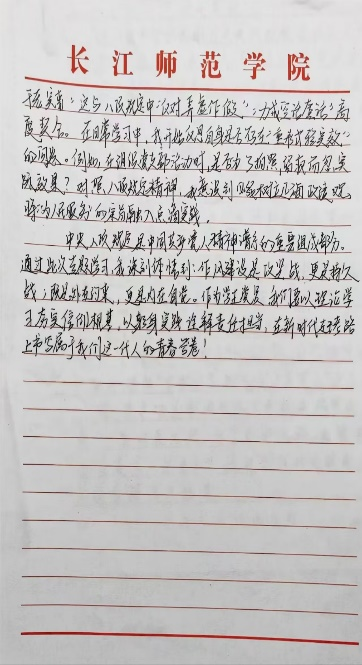 长江师范学院
求实有"。这与八项规定中"反对弄虚作假"，力戒空话废话"高
度契合。在日常学习中，我开始反思自身是否存在"重形式轻实效"
的问题。例如，在组织党支部活动时，是否为了拍照留痕而忽实
践效果？对照八项规定精神，我意识到必须树立正确政绩观
将"为人民服务"的宗旨融入点滴实践。
中央八项规定是中国共产党人精神谱系的重要组成部分。
通过此次专题学习，我深刻体悟到：作风建设是攻坚战，更是持久
战；既是外在约束，更是内在自觉。作为学生党员，我们要以理论学
习 信仰根基，以躬身实践诠释责任担当，在新时代赶考路
上书写属于我们这一代人的青春答卷！